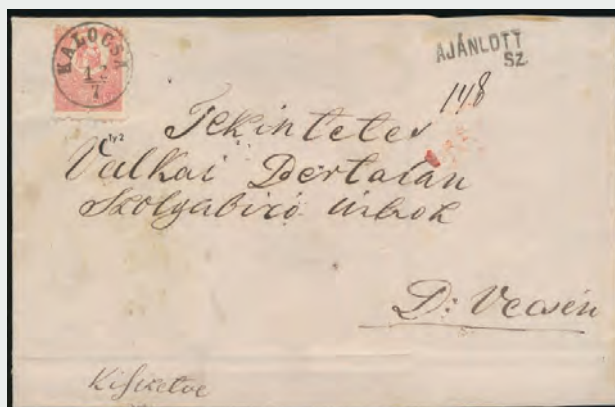 KALOCSA
12
7
AJÁNLOTT
SZ
148
Tekintetes
Valkai Bertalan
Szolgabiró Urnak
D: Vecsén
Kifizetve